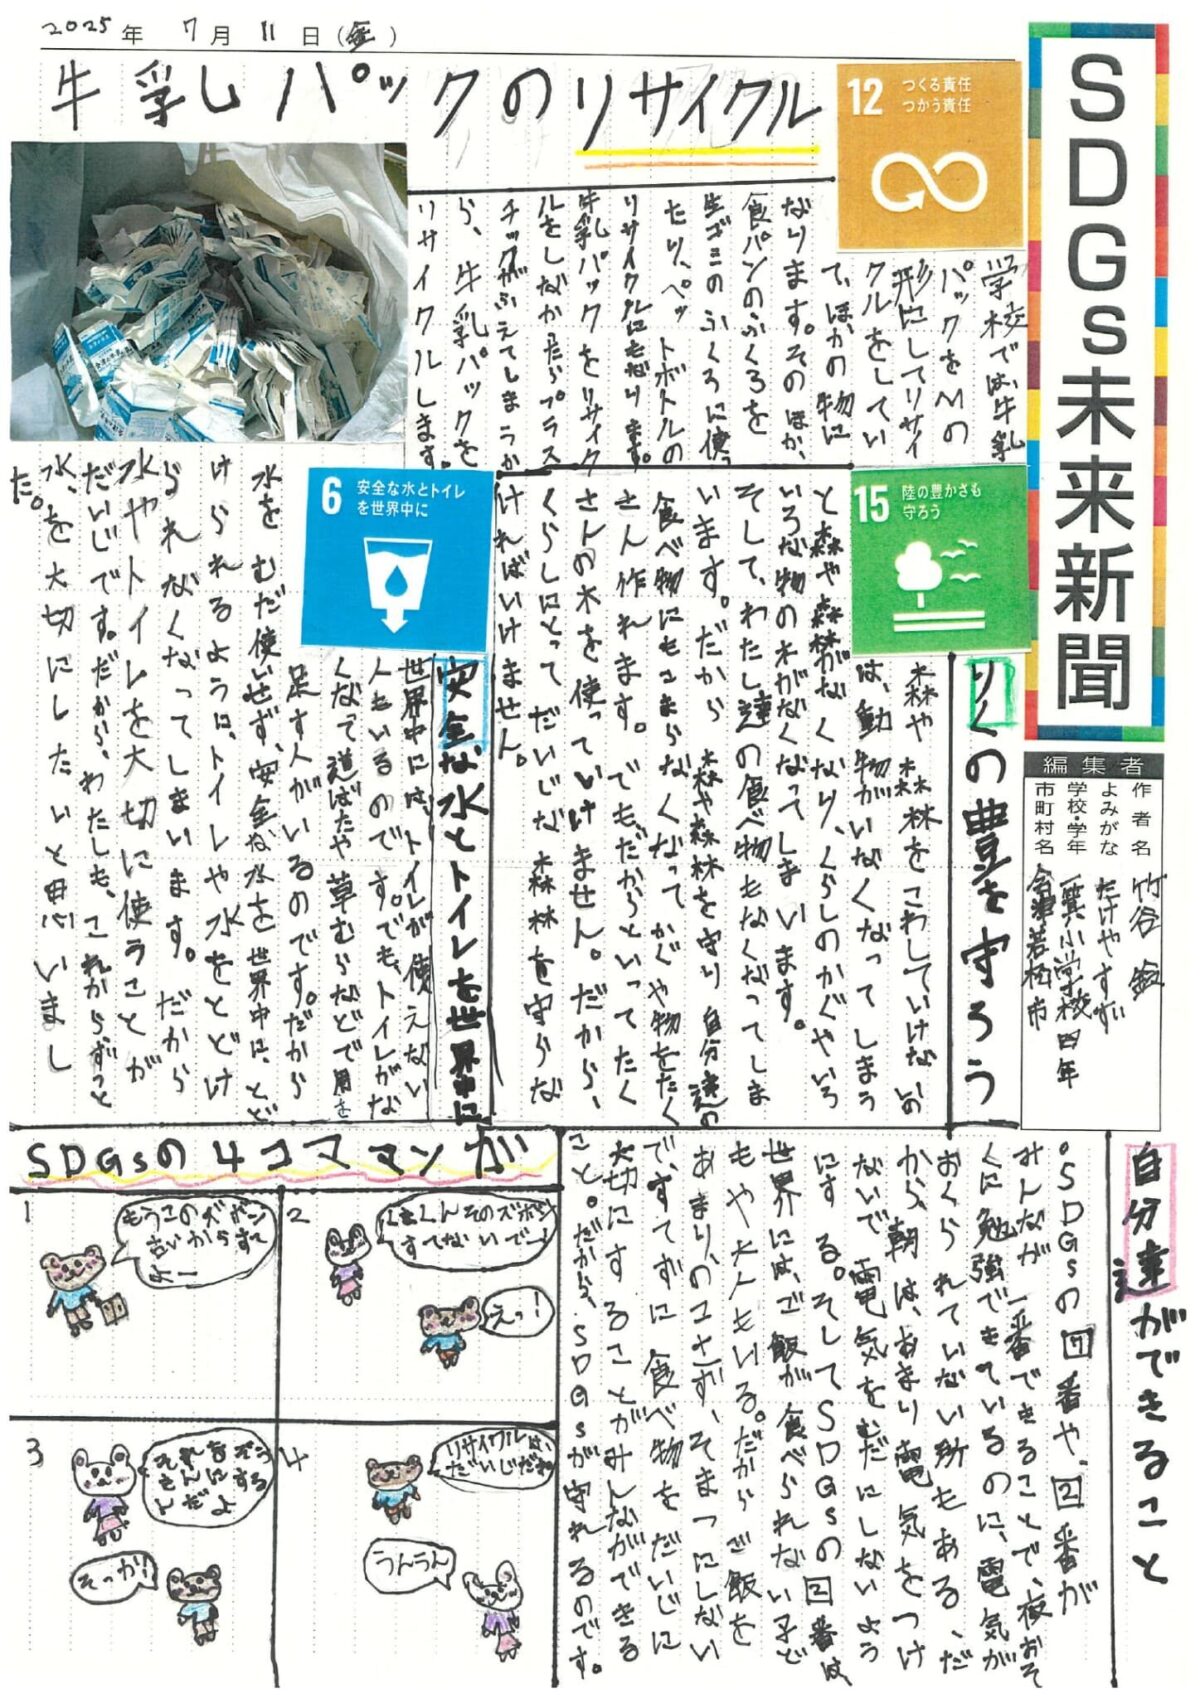 2025年 7月 11日(金)
SDGs未来新聞
編集者
作者名 竹谷
よみがな たけやすず
学校・学年 一箕小学校 四年
市町村名 会津若松市
牛乳しパックのリサイクル
12 つくる責任
つかう責任
学校では、牛乳
パックをMの
形にしてリサイ
クルをしてい
て、ほかの物に
なります。そのほか、
食パンのふくろを
生ゴミのふくろに使っ
たり、ペットボトルの
リサイクルにもなります。
牛乳パックをリサイク
ルをしなかったらプラス
チックがふえてしまうか
ら、牛乳パックを
リサイクルします。
15 陸の豊かさも
守ろう
りくの豊を守ろう
森や森林をこわしていけないの
は、動物がいなくなってしまう
と森や森林がなくなり、くらしのかぐやいろ
いろな物の木がなくなってしまいます。
そして、わたし達の食べ物もなくなってしま
います。だから森や森林を守り自分達の
食べ物にもこまらなくなって かぐや物をたく
さん作れます。でもだからといってたく
さんの木を使っていけません。だから、
くらしにとってだいじな森林を守らな
ければいけません。
6 安全な水とトイレ
を世界中に
安全な水とトイレを世界中に
世界中には、トイレが使えない
人もいるのです。でも、トイレがな
くなって道ばたや草むらなどで用を
足す人がいるのです。だから
水をむだ使いせず、安全な水を世界中に、とど
けられるように、トイレや水をとどけ
られなくなってしまいます。だから
水やトイレを大切に使うことが
だいじです。だから、わたしも、これからずっと
水、を大切にしたいと思いまし
た。
自分達ができること
。SDGsの 7 番や、2 番が
みんなが一番できることで、夜おそ
くに勉強できているのに、電気が
おくられていない所もある、だ
から、朝は、あまり電気をつけ
ないで電気をむだにしないよう
にする。そしてSDGsの 2 番は、
世界には、ご飯が食べられない子ど
もや大人もいる。だからご飯を
あまり、のこさず、そまつにしない
で、すてずに食べ物をだいじに
大切にすることがみんなができる
こと。だから、SDGsが守れるのです。
SDGsの4コママンが
1
もうこのズボン
古いからすて
よー
2
くまくんそのズボン
すてないでー!
えっ!
3
そっか!
4
リサイクルは、
だいじだね
うんうん